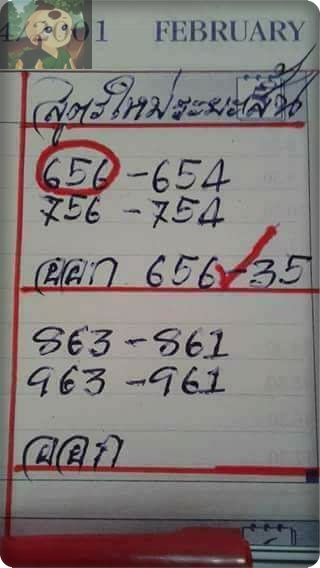 4/2001 FEBRUARY
สูตรใหม่ระยะสั้น
656 - 654
756 - 754
ออก 656 - 35
863 - 861
963 - 961
ออก